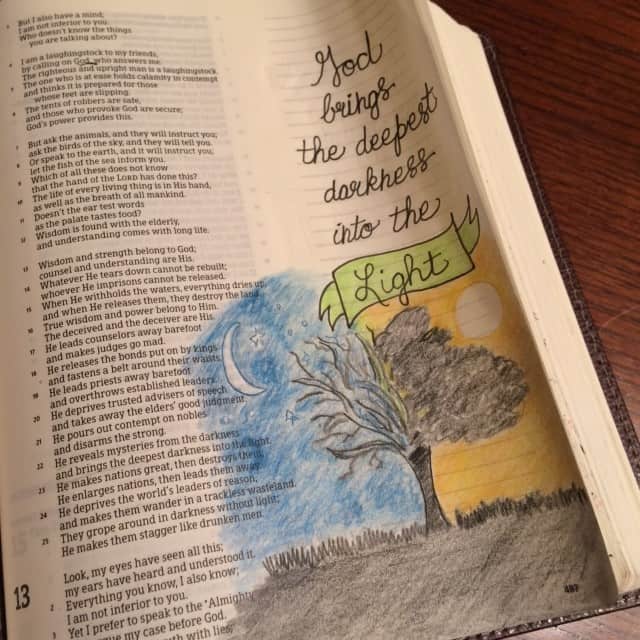 But I also have a mind;
I am not inferior to you.
Who doesn't know the things
you are talking about?
4 I am a laughingstock to my friends,
by calling on God, who answers me.
The righteous and upright man is a laughingstock.
5 The one who is at ease holds calamity in contempt
and thinks it is prepared for those
whose feet are slipping.
6 The tents of robbers are safe,
and those who provoke God are secure;
God's power provides this.
7 But ask the animals, and they will instruct you;
ask the birds of the sky, and they will tell you.
8 Or speak to the earth, and it will instruct you;
let the fish of the sea inform you.
9 Which of all these does not know
that the hand of the LORD has done this?
10 The life of every living thing is in His hand,
as well as the breath of all mankind.
11 Doesn't the ear test words
as the palate tastes food?
12 Wisdom is found with the elderly,
and understanding comes with long life.
13 Wisdom and strength belong to God;
counsel and understanding are His.
14 Whatever He tears down cannot be rebuilt;
whoever He imprisons cannot be released.
15 When He withholds the waters, everything dries up,
and when He releases them, they destroy the land.
16 True wisdom and power belong to Him.
The deceived and the deceiver are His.
17 He leads counselors away barefoot
and makes judges go mad.
18 He releases the bonds put on by kings
and fastens a belt around their waists.
19 He leads priests away barefoot
and overthrows established leaders.
20 He deprives trusted advisers of speech
and takes away the elders' good judgment.
21 He pours out contempt on nobles
and disarms the strong.
22 He reveals mysteries from the darkness
and brings the deepest darkness into the light.
23 He makes nations great, then destroys them;
He enlarges nations, then leads them away.
24 He deprives the world's leaders of reason,
and makes them wander in a trackless wasteland.
25 They grope around in darkness without light;
He makes them stagger like drunken men.
13 Look, my eyes have seen all this;
my ears have heard and understood it.
2 Everything you know, I also know;
I am not inferior to you.
3 Yet I prefer to speak to the Almighty
my case before God.
with lies
God
brings
the deepest
darkness
into the
Light